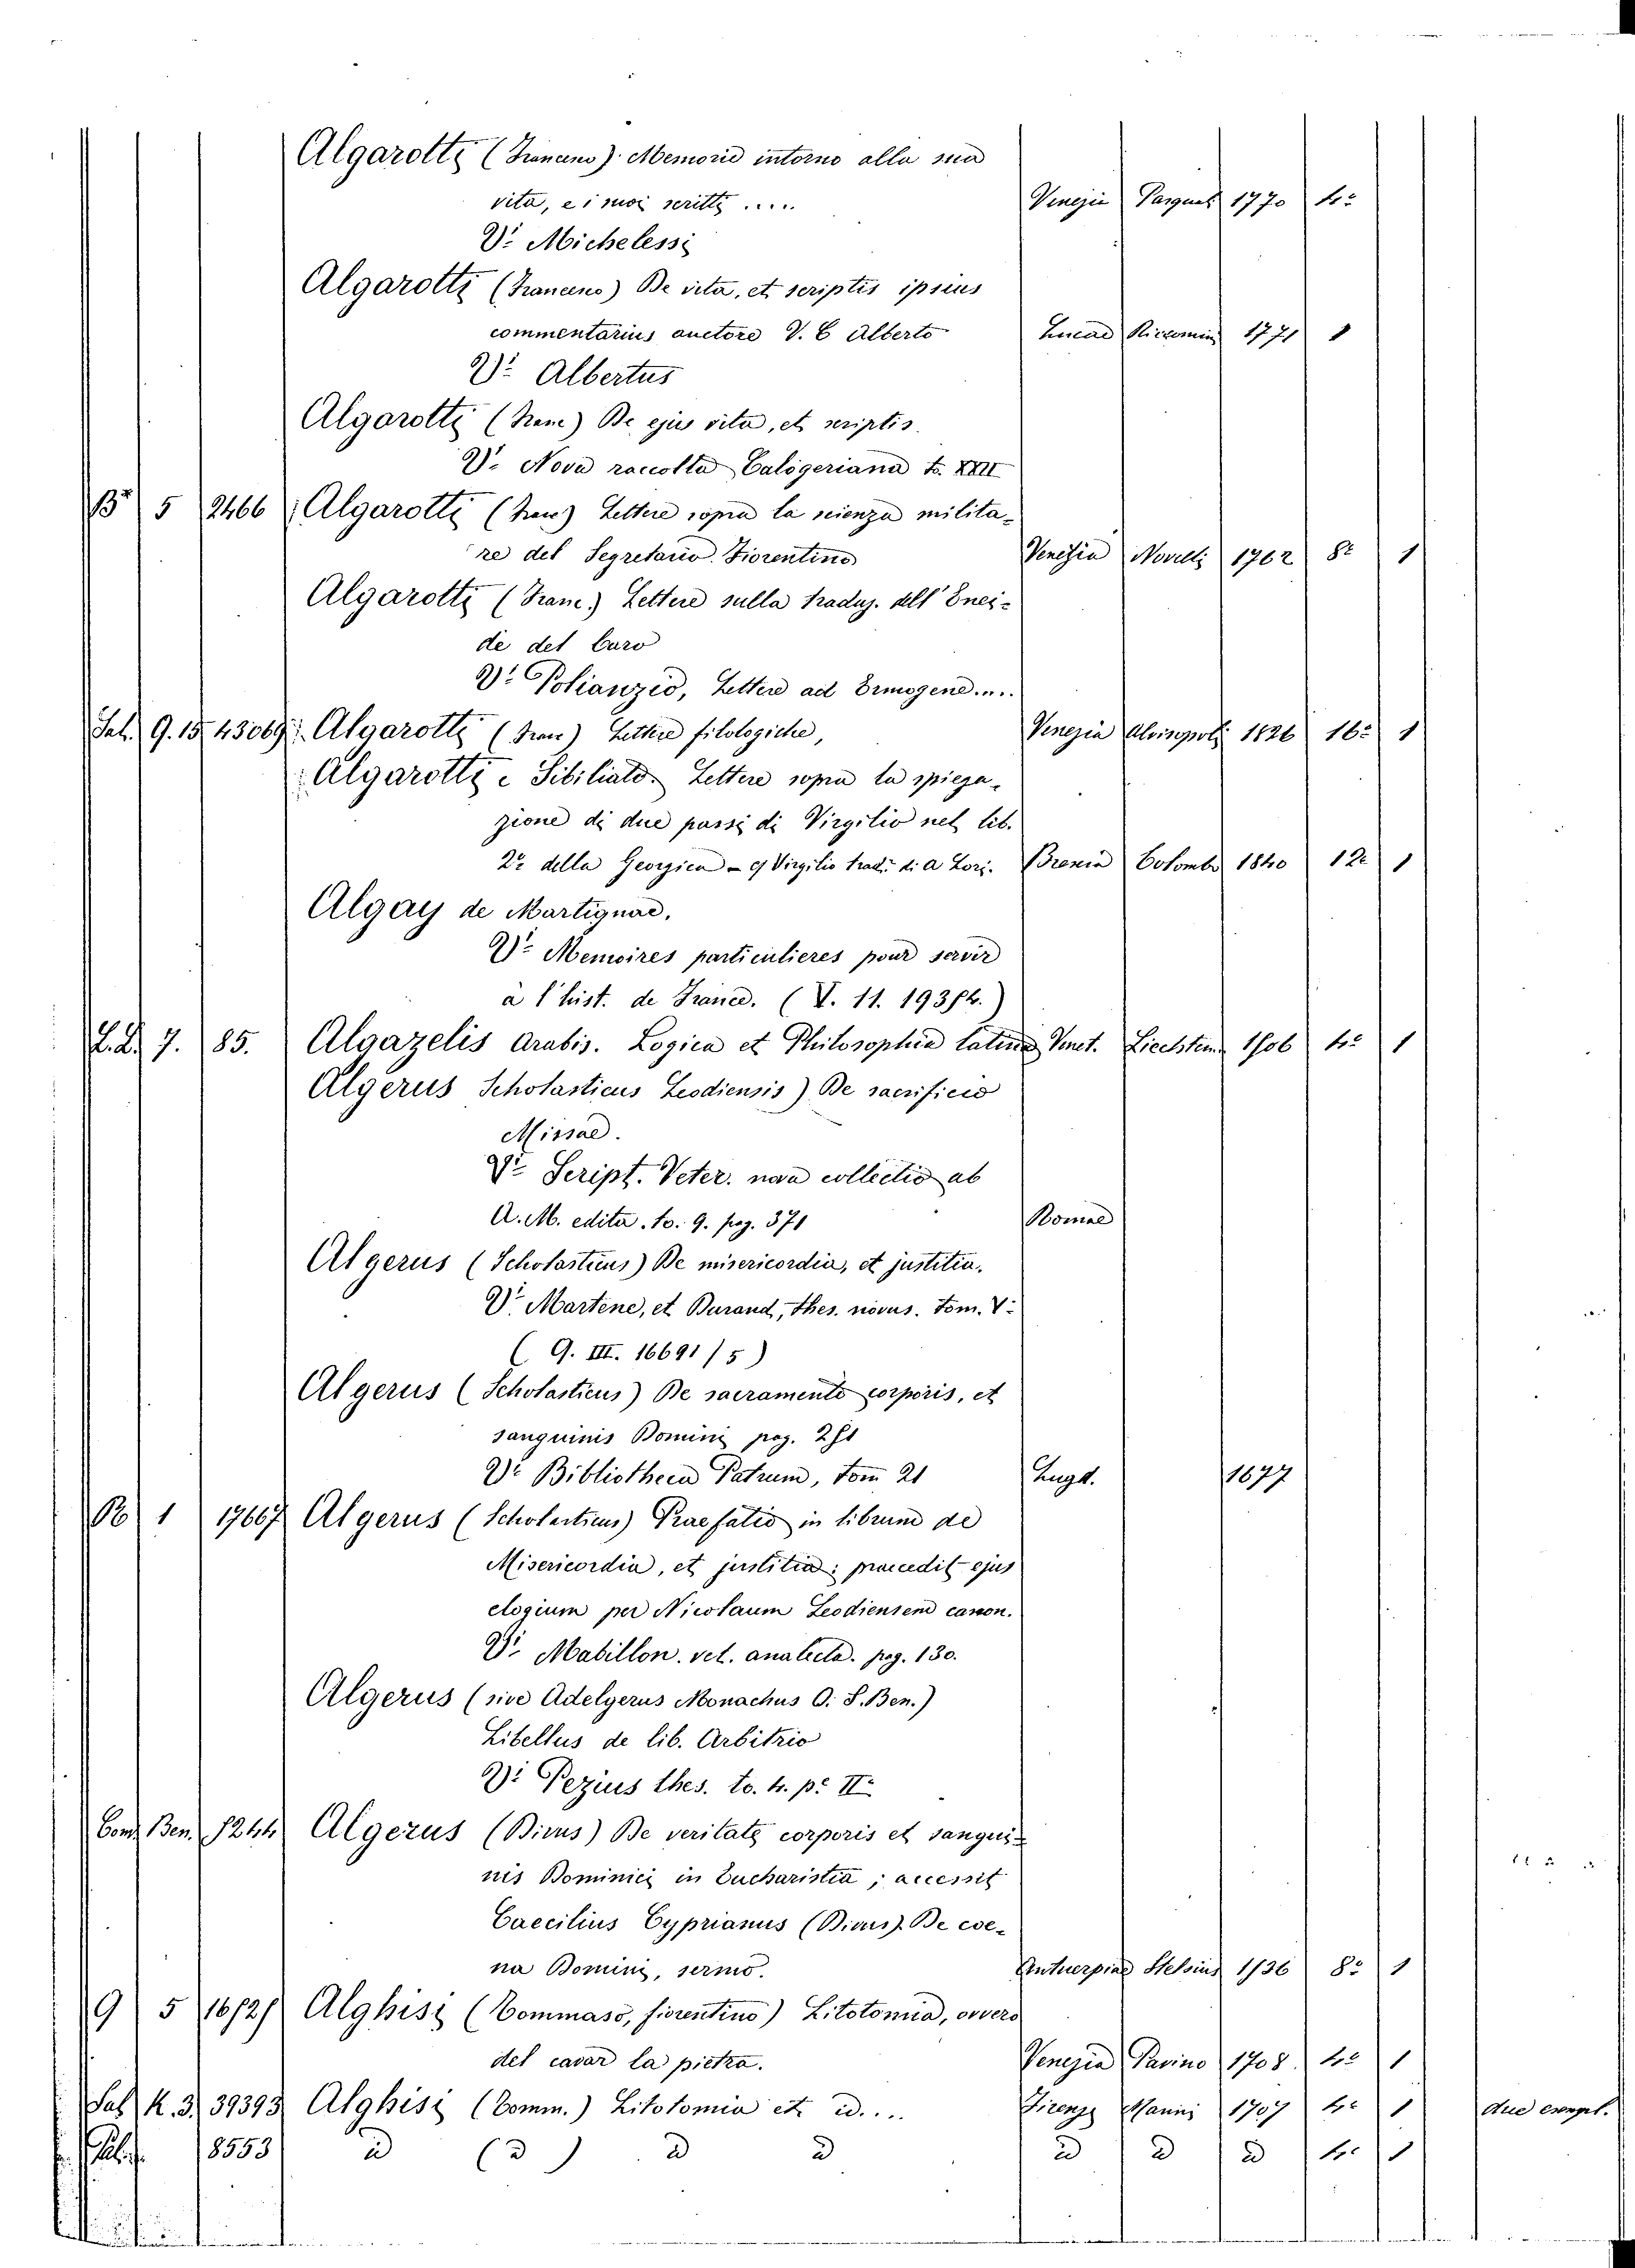 Algarotti (Francesco) Memorie intorno alla sua
vita, e i suoi scritti ..... Venezia Pasquali 1770 4º
Vº Michelessi
Algarotti (Francesco) De vita, et scriptis ipsius
commentarius auctore V. C Alberto Lucae Riccomini 1771 1
Vº Albertus
Algarotti (Franc) De ejus vita, et scriptis.
Vº Nova raccolta Calogeriana t. XXII
5 2466 Algarotti (Franc) Lettere sopra la scienza milita-
re del Segretario Fiorentino Venezia Novelli 1762 8º 1
Algarotti (Franc.) Lettere sulla traduz. dell' Enei-
de del Caro
Vº Polianzio, Lettere ad Ermogene ....
Sal. 9. 15 43069 Algarotti (Franc) Lettere filologiche, Venezia Alvisopoli 1826 16º 1
Algarotti e Sibiliato. Lettere sopra la spiega-
zione di due passi di Virgilio nel lib.
2º della Georgica - Virgilio trad. di A Lori. Colombo 1840 12º 1
Algay de Martignac.
Vº Memoires particulieres pour servir
à l'hist. de France. (V. 11. 193
7. 85. Algazelis Arabis. Logica et Philosophia latine Venet. Liechten. 1506 4º 1
Algerus Scholasticus Leodiensis) De sacrificio
Missae.
Vº Script. Veter. nova collectio ab
A. M. edita. to. 9. pag. 371 Romae
Algerus (Scholasticus) De misericordia, et justitia.
Vº Martene, et Durand, thes. novus. Tom. V.
( 9. III. 16691/5 )
Algerus (Scholasticus) De sacramento corporis, et
sanguinis Domini pag. 251
Vº Bibliotheca Patrum, tom 21 Lugd. 1677
1 17667 Algerus (Scholasticus) Praefatio in librum de
Misericordia, et justitia: praecedit ejus
elogium per Nicolaum Leodiensem canon.
Vº Mabillon. vet. analecta. pag. 130.
Algerus (sive Adelgerus Monachus O. S. Ben.)
Libellus de lib. Arbitrio
Vº Pezius thes. to. 4. pº IIª
Ben. 5244 Algerus (Divus) De veritate corporis et sangui-
nis Dominici in Eucharistia; accessit
Caecilius Cyprianus (Divus). De coe-
na Domini, sermo. Antuerpiae Stelsius 1536 8º 1
9 5 16525 Alghisi (Tommaso, fiorentino) Litotomia, ovvero
del cavar la pietra. Venezia Pavino 1708 4º 1
Sal K. 3 39393 Alghisi (Tomm.) Litotomia etc id.... Firenze Manni 1707 4º 1 due esempl.
8553 id (id) id id id id id 4º 1